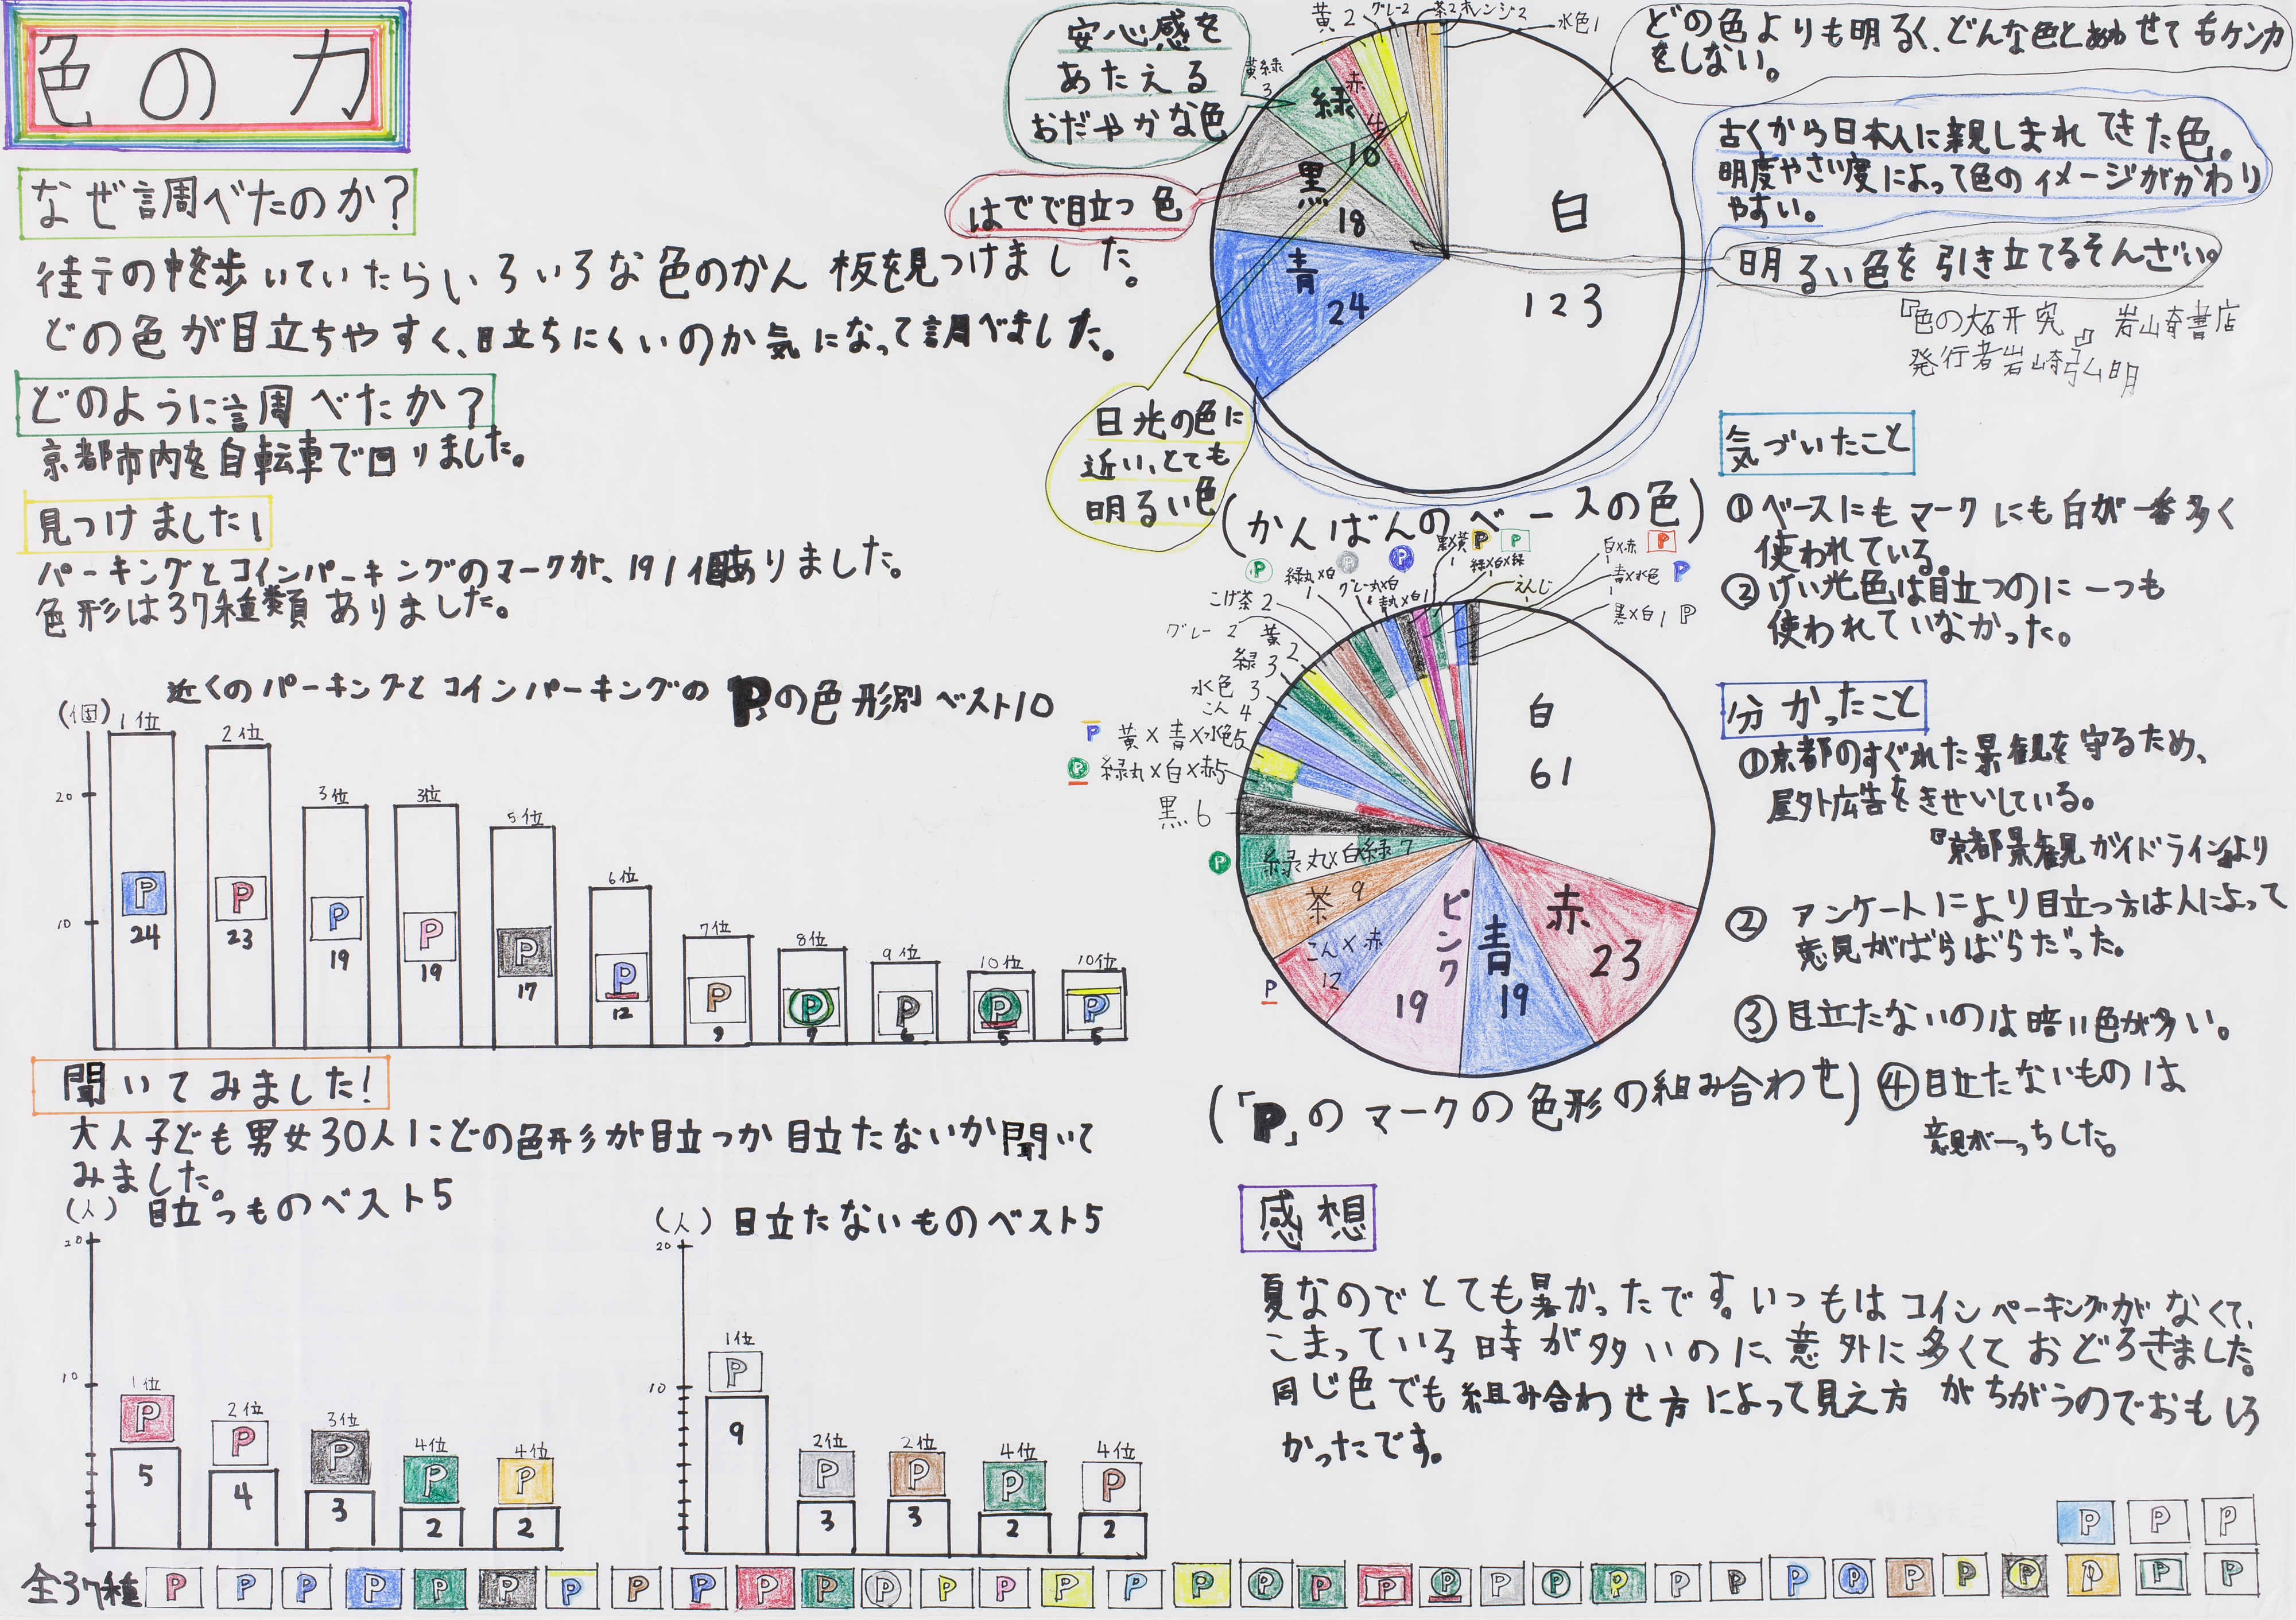 色の力
なぜ調べたのか?
街の中を歩いていたらいろいろな色のかん板を見つけました。
どの色が目立ちやすく、目立ちにくいのか気になって調べました。
どのように調べたか?
京都市内を自転車で回りました。
見つけました!
パーキングとコインパーキングのマークが、191個ありました。
色形は37種類ありました。
近くのパーキングとコインパーキングのPの色形別ベスト10
(個)
20
10
1位
P
24
2位
P
23
3位
P
19
3位
P
19
5位
P
17
6位
P
12
7位
P
9
8位
P
7
9位
P
6
10位
P
5
10位
P
5
聞いてみました!
大人子ども男女30人にどの色形が目立つか目立たないか聞いて
みました。
(人) 目立つものベスト5
20
10
1位
P
5
2位
P
4
3位
P
3
4位
P
2
4位
P
2
(人) 目立たないものベスト5
20
10
1位
P
9
2位
P
3
2位
P
3
4位
P
2
4位
P
2
安心感を
あたえる
おだやかな色
はでで目立つ色
日光の色に
近い、とても
明るい色
どの色よりも明るく、どんな色とあわせてもケンカ
をしない。
古くから日本人に親しまれてきた色。
明度やさい度によって色のイメージがかわり
やすい。
明るい色を引き立てるそんざい。
『色の大研究』 岩崎書店
発行者岩崎弘明
白
123
青
24
黒
18
緑
10
赤
4
黄緑
3
黄2
グレー2
茶2
オレンジ2
水色1
(かんばんのベースの色)
白
61
赤
23
青
19
ピンク
19
こん×赤
12
茶 9
緑丸×白緑 7
黒 6
緑丸×白×赤5
黄×青×水色5
こん 4
水色 3
緑 3
黄 2
グレー 2
こげ茶 2
緑丸×白
1
グレー丸×白
青丸×白1
黒×黄
緑×白×緑
えんじ
白×赤
青×水色
1
黒×白1
(「P」のマークの色形の組み合わせ)
気づいたこと
①ベースにもマークにも白が一番多く
使われている。
②けい光色は目立つのに一つも
使われていなかった。
分かったこと
①京都のすぐれた景観を守るため、
屋外広告をきせいしている。
『京都景観ガイドライン』より
② アンケートにより目立つ方は人によって
意見がばらばらだった。
③目立たないのは暗い色が多い。
④目立たないものは
意見が一っちした。
感想
夏なのでとても暑かったです。いつもはコインパーキングがなくて、
こまっている時が多いのに、意外に多くておどろきました。
同じ色でも組み合わせ方によって見え方がちがうのでおもしろ
かったです。
P P P
全37種 P P P P P P P P P P P P P P P P P P P P P P P P P P P P P P P P P P